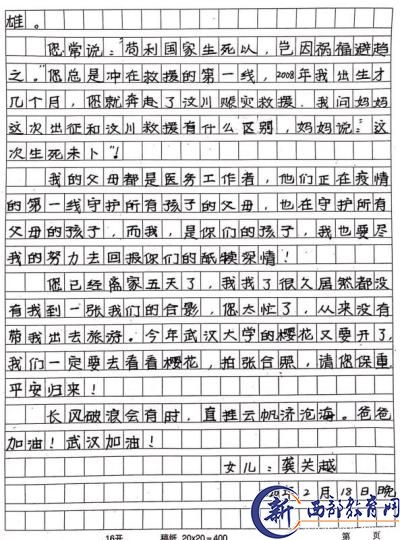 雄。
您常说："苟利国家生死以，岂因祸福避趋
之。"您总是冲在救援的第一线，2008年我出生才
几个月，您就奔赴了汶川赈灾救援。我问妈妈
这次出征和汶川救援有什么区别，妈妈说："这
次生死未卜"！
我的父母都是医务工作者，他们正在疫情
的第一线守护所有孩子的父母，也在守护所有
父母的孩子，而我，是你们的孩子，我也要尽
我的努力去回报你们的舐犊深情！
您已经离家五天了，我找了很久居然都没
有找到一张我们的合影，您太忙了，从来没有
带我出去旅游。今年武汉大学的樱花又要开了，
我们一定要去看看樱花，拍张合照，请您保重，
平安归来！
长风破浪会有时，直挂云帆济沧海。爸爸
加油！武汉加油！
女儿：龚关越
2月18日晚
16开 稿纸 20×20=400 第 页
新 西部教育网